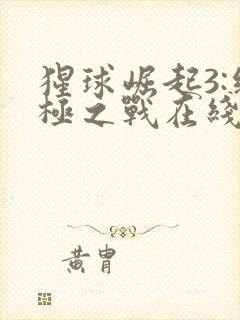 猩球崛起3:終
極之戰在綫
黄胄